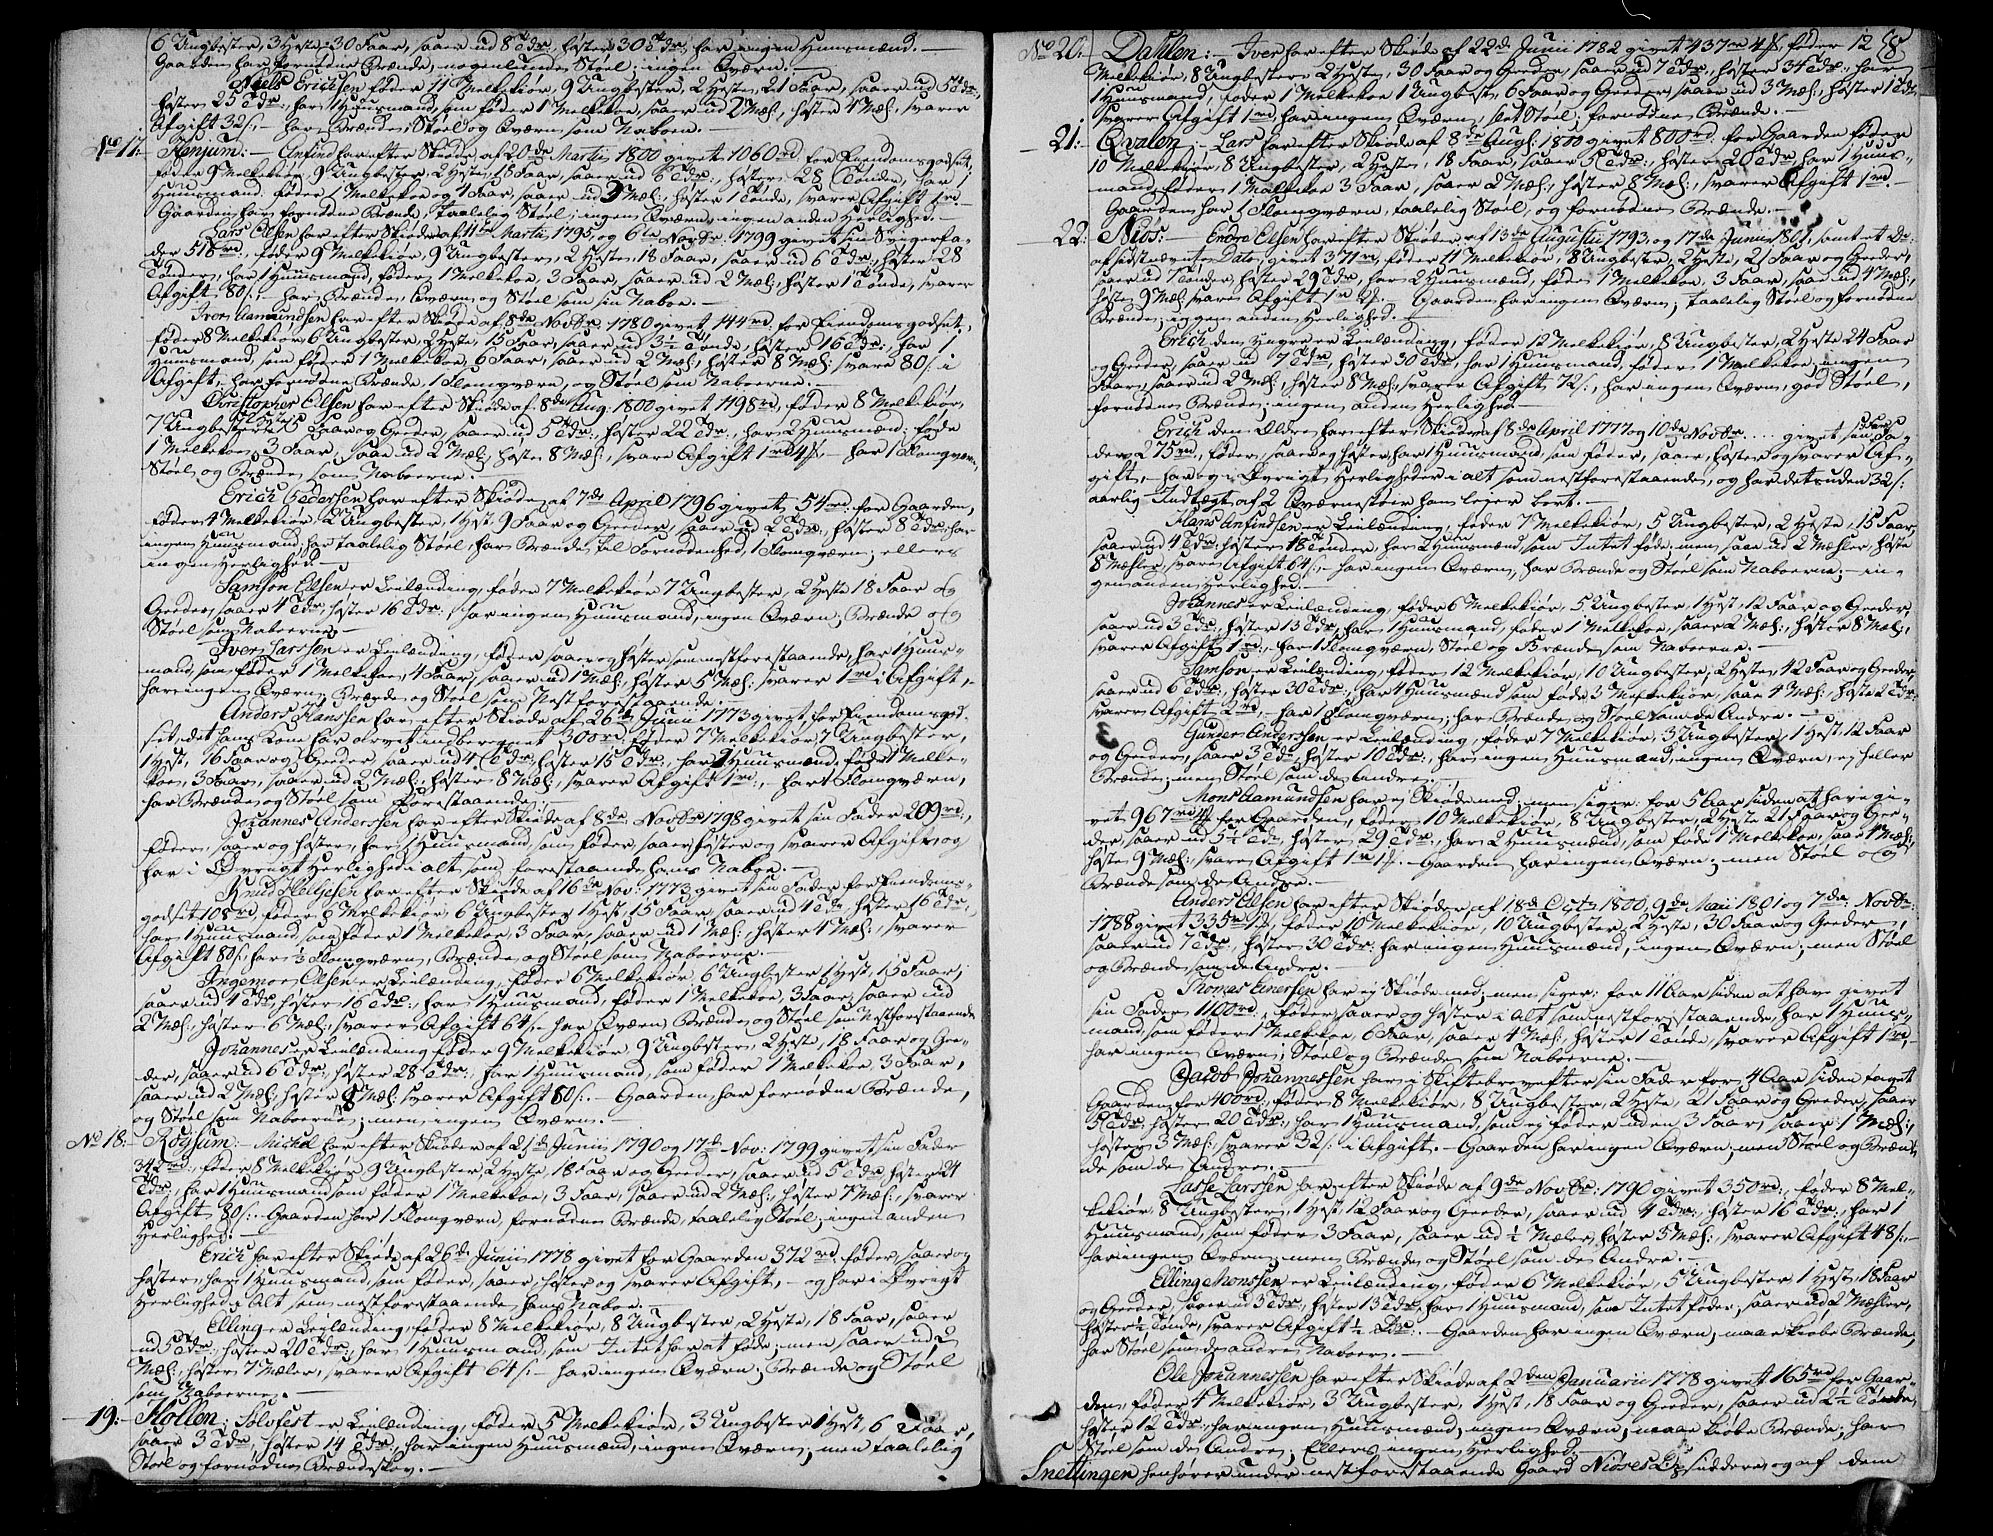 6 Ungbester, 3 Heste, 30 Faar, saaer ud 8 Tdr:, høster 30 Tdr:, har ingen Huusmænd. —
Gaarden har fornødne Brænde, nogenlunde Støel; ingen Qværn. —
Niels Erichsen føder 11 Melkekiør, 9 Ungbester, 2 Heste, 21 Faar, saaer ud 5 Tdr:,
høster 25 Tdr:, har 1 Huusmand, som føder 1 Melkekoe, saaer ud 2 Mæl:, høster 4 Mæl:, svarer
Afgift 32 s, — har Brænde, Støel og Qværn som Naboen. —
No 17. Henjum: — Anfind har efter Skiøde af 20de Martii 1800 givet 1060 rd for Eiendomsgodset,
føder 9 Melkekiør, 9 Ungbester, 2 Heste, 15 Faar, saaer ud 6 Tdr:, høster 28 Tønder, har 1
Huusmand, føder 1 Melkekoe og 4 Faar, saaer ud 3 Mæl:, høster 1 Tønde, svarer Afgift 1 rd —
Gaarden har fornødne Brænde, taalelig Støel; ingen Qværn, ingen anden Herlighed. —
Lars Olsen har efter Skiøder af 11te Martii 1795, og 6te Novbr: 1799 givet sin Svigerfa-
der 518 rd:, føder 9 Melkekiør, 9 Ungbester, 2 Heste, 18 Faar, saaer ud 6 Tdr:, høster 28
Tønder, har 1 Huusmand, føder 1 Melkekoe, 3 Faar, saaer ud 2 Mæl:, høster 1 Tønde, svarer
Afgift 80 s, — har Brænde, Qværn og Støel som sin Naboe. —
Iver Aamundsen har efter Skiøde af 8de Novbr: 1780 givet 144 rd for Eiendomsgodset,
føder 8 Melkekiør, 6 Ungbester, 2 Heste, 15 Faar, saaer ud 3½ Tønde, høster 16 Tdr:, har 1
Huusmand, som føder 1 Melkekoe, 6 Faar, saaer ud 2 Mæl:, høster 8 Mæl: svare 80 s i
Afgift, har fornødne Brænde, 1 Flomqværn, og Støel som Naboerne. —
Christopher Olsen har efter Skiøde af 8de Aug: 1800 givet 1198 rd, føder 8 Melkekiør,
7 Ungbester, 15 Faar og Geeder, saaer ud 5 Tdr:, høster 22 Tdr:, har 2 Huusmænd: føde
1 Melkekoe, 3 Faar, saaer ud 2 Mæl:, høster 8 Mæl:, svare Afgift 1 rd 4 s, — har 1 Flomqværn,
Støel og Brænde som Naboerne. —
Erich Pedersen har efter Skiøde af 7de April 1796 givet 54 rd: for Gaarden,
føder 4 Melkekiør, 2 Ungbester, 1 Hest, 9 Faar og Geeder, saaer ud 2 Tdr:, høster 8 Tdr: har
ingen Huusmand; har taalelig Støel, har Brænde til Fornødenhed, 1 Flomqværn; ellers
ingen Herlighed. —
Samson Olsen er Leilænding, føder 7 Melkekiør, 7 Ungbester, 2 Heste 18 Faar og
Geeder, saaer 4 Tdr:, høster 16 Tdr:, har ingen Huusmand, ingen Qværn; Brænde og
Støel som Naboerne. —
Iver Larssen er Leilænding, føder saaer og høster som nestforestaaende, har 1 Huus-
mand, som føder 1 Melkekoe, 4 Faar, saaer ud 1 Mæl:, høster 5 Mæl: svarer 1 rd i Afgift,
har ingen Qværn; Brænde og Støel som Nestforestaaende. —
Anders Hanssen har efter Skiøde af 26de Junii 1773 givet for Eiendomsgod-
set, det hans Kone har arvet indberegnet 300 rd, føder 7 Melkekiør, 7 Ungbester,
1 Hest, 16 Faar og Geeder, saaer ud 4 Tdr, høster 15 Tdr:, har 1 Huusmand, føder 1 Melke-
koe, 3 Faar, saaer ud 2 Mæl:, høster 8 Mæl:, svarer Afgift 1 rd:, — har 1 Flomqværn,
har Brænde og Støel som forestaaende. —
Johannes Andersen har efter Skiøde af 8de Novbr 1798 givet sin Fader 209 rd:,
føder, saaer og høster, har 1 Huusmand, som føder, saaer, høster og svarer Afgift, og
har i Øvrigt Herlighed i alt som forestaaende hans Naboe. —
Knud Helgesen har efter Skiøde af 16de Nov: 1773 givet sin Fader for Eiendoms-
godset 108 rd, føder 6 Melkekiør, 6 Ungbester, 1 Hest, 15 Faar, saaer ud 4 Tdr, høster 16 Tdr:,
har 1 Huusmand som føder 1 Melkekoe, 3 Faar, saaer ud 1 Mæl:, høster 4 Mæl:, svarer
Afgift 80 s, har ½ Flomqværn, Brænde og Støel som Naboerne. —
Ingemoe Olsen er Leilænding, føder 6 Melkekiør, 6 Ungbester 1 Hest, 15 Faar,
saaer ud 4 Tdr:, høster 16 Tdr:, har 1 Huusmand, føder 1 Melkekoe, 3 Faar, saaer ud
2 Mæl:, høster 6 Mæl:, svarer Afgift 64 s, har Qværn, Brænde og Støel som Nestforestaaende
Johannes er Leilænding, føder 9 Melkekiør, 9 Ungbester, 2 Heste, 18 Faar og Gee-
der, saaer ud 6 Tdr:, høster 28 Tdr:, har 1 Huusmand, som føder 1 Melkekoe, 3 Faar,
saaer ud 2 Mæl: høster 8 Mæl: svarer Afgift 80 s. — Gaarden har fornødne Brænde,
og Støel som Naboerne; men ingen Qværn. —
No 18: Røysum: — Michel har efter Skiøder af 21de Junii 1790 og 17de Nov: 1799 givet sin Fader
342 rd:, føder 8 Melkekiør, 9 Ungbester, 2 Heste, 18 Faar og Geeder, saaer ud 5 Tdr høster 24
Tdr:, har 1 Huusmand som føder 1 Melkekoe, 3 Faar, saaer ud 2 Mæl:, høster 7 Mæl:, svarer
Afgift 80 s. — Gaarden har 1 Flomqværn, fornødne Brænde, taalelig Støel; ingen anden
Herlighed. —
Erich har efter Skiøde af 26de Junii 1778 givet for Gaarden 372 rd: føder, saaer og
høster, har 1 Huusmand, som føder, saaer, høster og svarer Afgift, — og har i Øvrigt
Herlighed i Alt som nestforestaaende hans Naboe. —
Elling er Leilænding, føder 8 Melkekiør, 8 Ungbester, 2 Heste, 18 Faar, saaer
ud 5 Tdr:, høster 20 Tdr:, har 1 Huusmand, som Intet har at føde; men saaer ud 2
Mæl:, høster 7 Mæler, svarer Afgift 64 s. — har ingen Qværn; Brænde og Støel
som Naboerne. —
— 19. — Kollen: Solvfest er Leilænding, føder 5 Melkekiør, 3 Ungbester 1 Hest, 6 Faar,
saaer 3 Tdr:, høster 14 Tdr:, har ingen Huusmænd, ingen Qværn; men taalelig
Støel og fornødne Brændeskov. —
No 20. Dahlen: — Iver har efter Skiøde af 22de Junii 1782 givet 437 rd 4 s, føder 12 8
Melkekiør, 8 Ungbester, 2 Heste, 30 Faar og Geeder, saaer ud 7 Tdr:, høster 34 Tdr:, har
1 Huusmand, føder 1 Melkekoe 1 Ungbest, 6 Faar og Geeder, saaer ud 3 Mæl:, høster 1 Tdr
svarer Afgift 1 rd, har ingen Qværn, slet Støel; fornødne Brænde.
— 21: — Qvalen: — Lars har efter Skiøde af 8de Aug: 1800 givet 800 rd: for Gaarden, føder
10 Melkekiør, 8 Ungbester, 2 Heste, 18 Faar, saaer 5 Tdr:, høster 20 Tdr har 1 Huus-
mand, føder 1 Melkekoe 3 Faar, saaer 2 Mæl:, høster 8 Mæl:, svarer Afgift 1 rd. —
Gaarden har 1 Flomqværn, taalelig Støel, og fornødne Brænde. —
— 22: — Niøs: — Endre Olsen har efter Skiøder af 13de Augustii 1793, og 17de Junii 1801, samt et Do:
af sidstnævnte Dato, givet 371 rd, føder 11 Melkekiør, 8 Ungbester, 2 Heste, 21 Faar og Geeder,
saaer ud 7 Tønder, høster 29 Tdr:, har 2 Huusmænd, føder 1 Melkekoe, 3 Faar, saaer ud 4 Mæl:,
høste 9 Mæl, svare Afgift 1 rd. — Gaarden har ingen Qværn; taalelig Støel og fornødne
Brænde; ingen anden Herlighed. —
Erich den Yngre er Leilænding, føder 12 Melkekiør, 8 Ungbester, 2 Heste 24 Faar
og Geeder, saaer ud 7 Tdr, høster 30 Tdr, har 1 Huusmand, føder 1 Melkekoe, ingen
Faar, saaer ud 2 Mæl:, høster 8 Mæl:, svarer Afgift 72 s, har ingen Qværn, god Støel,
fornødne Brænde; ingen anden Herlighed. —
Erich den Ældre har efter Skiøder af 8de April 1777 og 10de Novbr: .... givet sin Fa-
der 275 rd, føder, saaer og høster, har 1 Huusmand, som føder, saaer, høster og svarer Af-
gift, — har og i Øvrigt Herligheder i alt som nestforestaaende, og har desuden 32 s:
aarlig Indtægt af 2 Qværnestøer han leier bort. —
Hans Anfindsen er Leilænding, føder 7 Melkekiør, 5 Ungbester, 2 Heste, 15 Faar,
saaer ud 4 Tdr:, høster 18 Tønder, har 2 Huusmænd som Intet føde, men saae ud 2 Mæhler, høste
8 Mæhler, svare Afgift 64 s. — har ingen Qværn, har Brænde og Støel som Naboerne; — in-
gen anden Herlighed. —
Johannes er Leilænding, føder 6 Melkekiør, 5 Ungbester, 1 Hest, 12 Faar og Geeder,
saaer ud 3 Tdr:, høster 13 Tdr:, har 1 Huusmand, føder 1 Melkekoe, saaer 2 Mæl:, høster 8 Mæl:,
svarer Afgift 1 rd:, har 1 Flomqværn, Støel og Brænde som Naboerne. —
Samson er Leilænding, føder 12 Melkekiør, 10 Ungbester, 2 Heste, 42 Faar og Geeder,
saaer ud 6 Tdr:, høster 30 Tdr:, har 4 Huusmænd som føde 3 Melkekiør, saae 4 Mæl:, høste 2 Tdr:
svarer Afgift 2 rd, — har 1 Flomqværn; har Brænde og Støel som de Andre. —
Gunder Andersen er Leilænding, føder 7 Melkekiør, 3 Ungbester, 1 Hest, 12 Faar
og Geeder, saaer 3 Tdr, høster 10 Tdr:, har ingen Huusmand, ingen Qværn, ej heller
Brænde; men Støel som de Andre. —
Mons Aamundsen har ej Skiøde med; men siger: for 5 Aar siden at have gi-
vet 967 rd 4 s for Gaarden, føder 10 Melkekiør, 8 Ungbester, 2 Heste 21 Faar og Gee-
der, saaer ud 5½ Tdr, høster 29 Tdr:, har 2 Huusmænd, som føde 1 Melkekoe, saae 4 Mæl:,
høste 9 Mæl:, svare Afgift 1 rd. — Gaarden har ingen Qværn; men Støel og
Brænde som de Andre. —
Anders Olsen har efter Skiøder af 18de Octbr 1800, 9de Maii 1801 og 7de Novbr:
1788 givet 335 rd, føder 10 Melkekiør, 10 Ungbester, 2 Heste, 30 Faar og Geeder,
saaer ud 7 Tdr:, høster 30 Tdr: har ingen Huusmænd, ingen Qværn; men Støel
og Brænde som de Andre. —
Thomas Einersen har ej Skiøde med; men siger: for 11 Aar siden at have givet
sin Fader 1100 rd., føder, saaer og høster i Alt som nestforestaaende, har 1 Huus-
mand, som føder 1 Melkekoe, 6 Faar, saaer 4 Mæl:, høster 1 Tønde, svarer Afgift 1 rd, —
har ingen Qværn; Støel og Brænde som Naboerne. —
Jacob Johannessen har i Skiftebrev efter sin Fader for 4 Aar siden taget
Gaarden for 400 rd, føder 8 Melkekiør, 8 Ungbester, 2 Heste, 21 Faar og Geeder, saaer
5 Tdr:, høster 20 Tdr:, har 1 Huusmand, som ej føder uden 3 Faar, saaer 1 Mæl:,
høster 3 Mæl:, svarer 32 s: i Afgift. — Gaarden har ingen Qværn; men Støel og Bræn-
de som de Andre. —
Lasse Larssen har efter Skiøde af 9de Novbr: 1790 givet 350 rd:, føder 8 Mel-
kekiør, 8 Ungbester, 1 Hest, 12 Faar og Geeder, saaer ud 4 Tdr:, høster 16 Tdr:, har 1
Huusmand, som føder 3 Faar, saaer ud ½ Mæler, høster 5 Mæl:, svarer Afgift 48 s, —
har ingen Qværn; men Brænde og Støel som de Andre. —
Elling Monssen er Leilænding, føder 6 Melkekiør, 5 Ungbester 1 Hest, 18 Faar
og Geeder, saaer ud 3 Tdr:, høster 13 Tdr:, har 1 Huusmand, som Intet føder, saaer ud 2 Mæhler,
høster ½ Tønde, svarer Afgift ½ rd: — Gaarden har ingen Qværn; maae kiøbe Brænde,
har Støel som de andre Naboer. —
Ole Johannessen har efter Skiøde af 2den Januarii 1778 givet 165 rd for Gaar-
den, føder 4 Melkekiør, 3 Ungbester, 1 Hest, 18 Faar og Geeder, saaer ud 2½ Tønde,
høster 12 Tdr:, har ingen Huusmænd, ingen Qværn; maae kiøbe Brænde; har
Støel som de Andre; Ellers ingen Herlighed. —
Snettingen henhører under nestforestaaende Gaard Niøses Opsiddere, og af dem